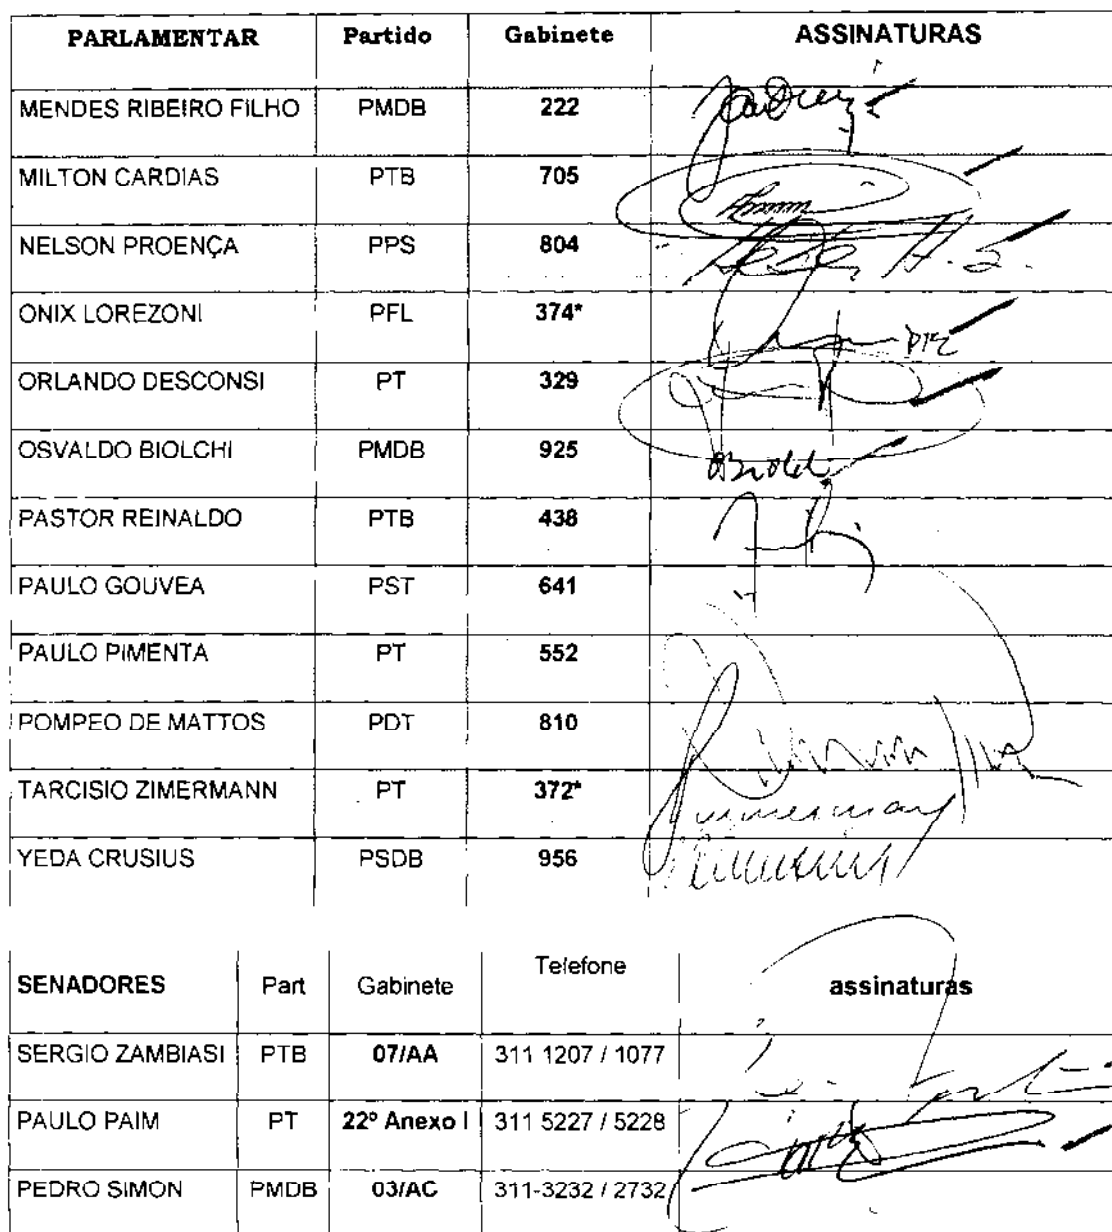 PARLAMENTAR Partido Gabinete ASSINATURAS
MENDES RIBEIRO FILHO PMDB 222
MILTON CARDIAS PTB 705
NELSON PROENÇA PPS 804
ONIX LOREZONI PFL 374*
ORLANDO DESCONSI PT 329
OSVALDO BIOLCHI PMDB 925
PASTOR REINALDO PTB 438
PAULO GOUVEA PST 641
PAULO PIMENTA PT 552
POMPEO DE MATTOS PDT 810
TARCISIO ZIMERMANN PT 372*
YEDA CRUSIUS PSDB 956
SENADORES Part Gabinete Telefone assinaturas
SERGIO ZAMBIASI PTB 07/AA 311 1207 / 1077
PAULO PAIM PT 22º Anexo I 311 5227 / 5228
PEDRO SIMON PMDB 03/AC 311-3232 / 2732